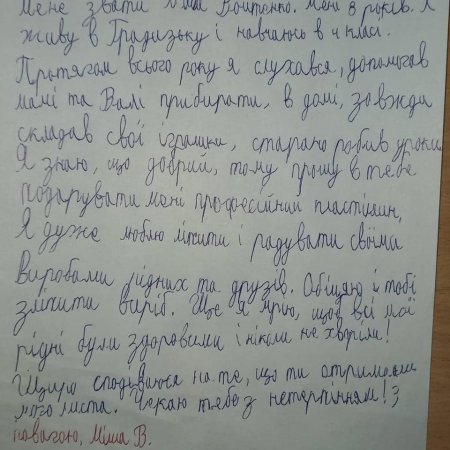 Мене звати Міша Войтенко. Мені 8 років. Я
живу в Градизьку і навчаюсь в 4 класі.
Протягом всього року я слухався, допомагав
мамі та Валі прибирати, в домі, завжди
складав свої іграшки, старано робив уроки
Я знаю, що добрий, тому прошу в тебе
подарувати мені професійний пластилін,
Я дуже люблю ліпити і радувати своїма
виробами рідних та друзів. Обіцяю й тобі
зліпити виріб. Ще я мрію, щоб всі мої
рідні були здоровими і ніколи не хворіли!
Щиро сподіваюся на те, що ти отримаєш
мого листа. Чекаю тебе з нетерпінням! З
повагою, Міша В.